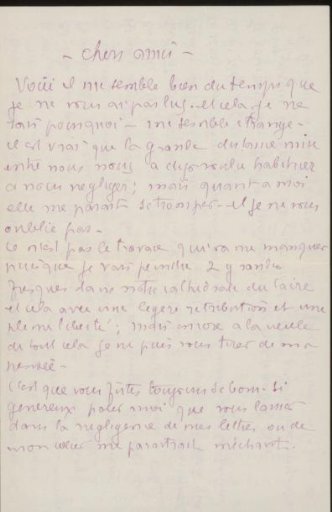 - Cher ami -
Voici il me semble bien du temps que
je ne vous ai pas lu. et cela je ne
sais pourquoi - me semble étrange -
il est vrai que la grande distance mise
entre nous nous a déjà voulu habituer
a nous negliger; mais quant a moi
elle me parait se tromper - et je ne vous
oublie pas -
Ce n'est pas le travail qui va me manquer
puisque je vais peindre 2 grandes
fresques dans notre cathédrale du Caire
et cela avec une legere retribution et une
pleine liberté; mais encore a la veille
de tout cela je ne puis vous tirer de ma
pensée -
C'est que vous fûtes toujours si bon. si
genereux pour moi que vous laisser
dans la negligence de mes lettres ou de
mon cœur me paraitrait méchant.